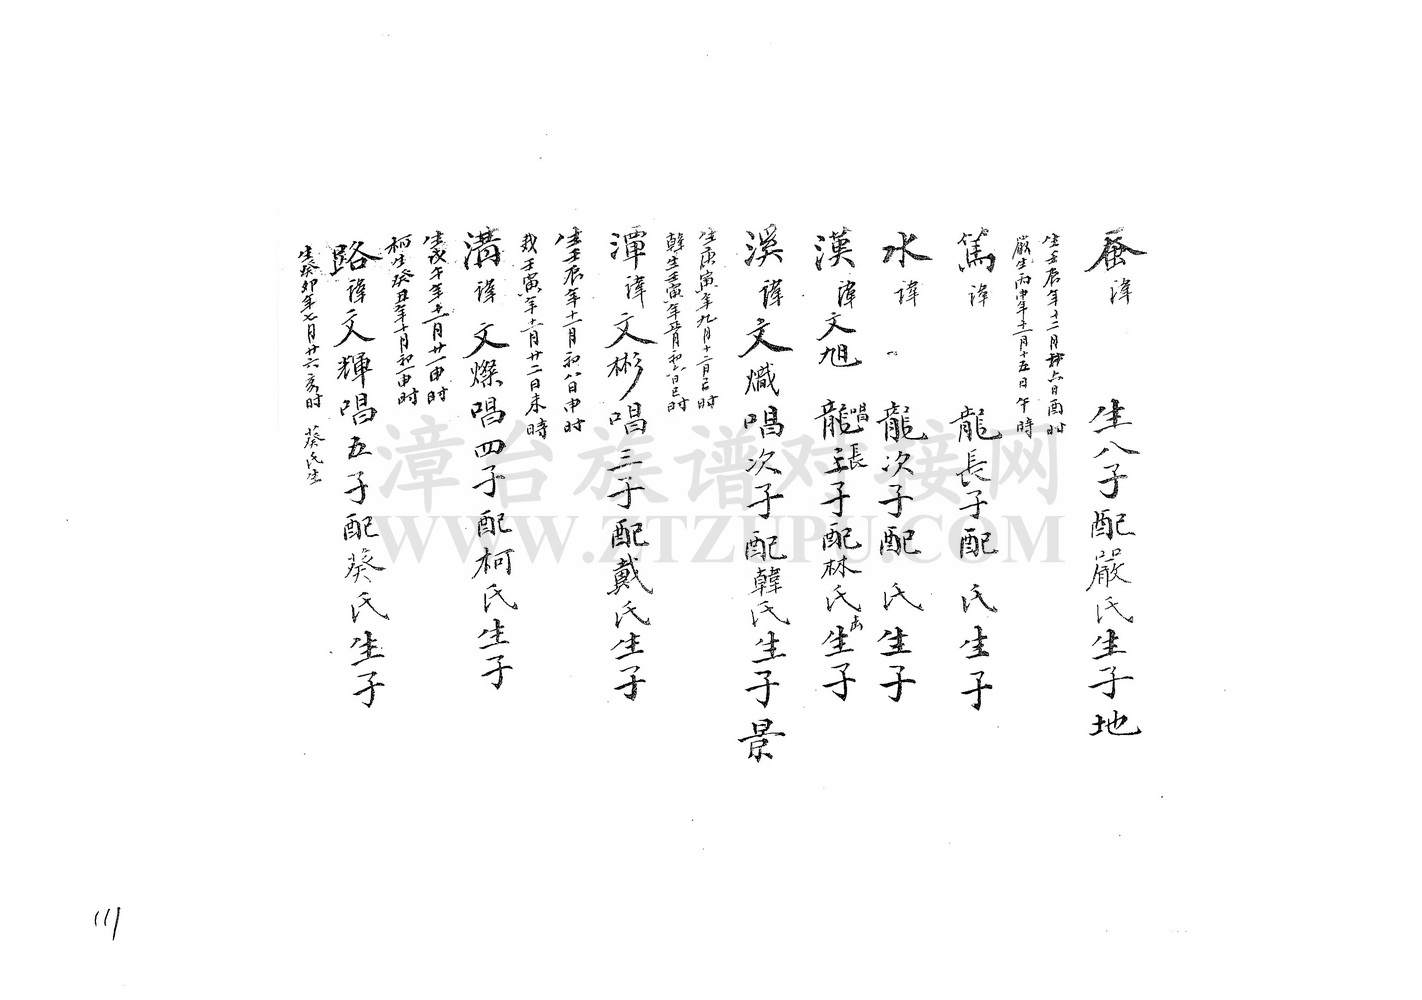 蚕 諱 生八子配嚴氏生子地
生壬辰年十二月廿六日酉时
嚴生丙申年十二月十五日午時
篤 諱 龍長子配 氏生子
水 諱 龍次子配 氏生子
漢 諱文旭 龍三子配林氏生子
唱長
溪 諱文熾唱次子配韓氏生子景
生庚寅年九月十二日巳时
韓生壬寅年 月初六日巳时
潭諱文彬唱三子配戴氏生子
生壬辰年十一月初八日申时
戴壬寅年十一月廿二日未時
溝諱文燦唱四子配柯氏生子
生戊午年十一月廿一申时
柯生癸丑年十月初一申时
路諱文輝唱五子配葵氏生子
生癸卯年七月廿六亥时 葵氏生
漳台族谱对接网
WWW.ZTZUPU.COM
111